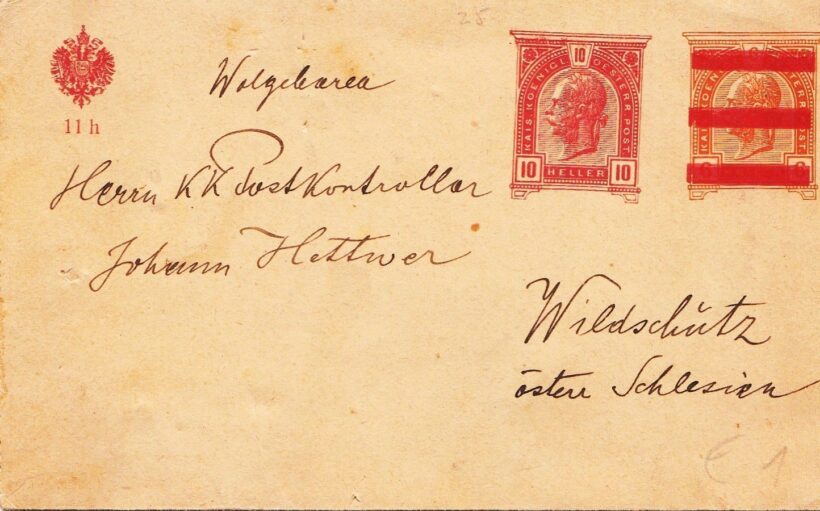 25
11 h
KAIS. KOENIGL. OESTERR. POST
10
10 HELLER 10
KAIS. KOEN
6 6
Wolgeborea
Herrn KK Postkontrollor
Johann Hettwer
Wildschütz
österr Schlesien
€ 1